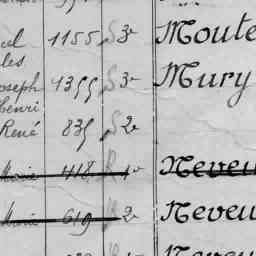 1155 S 3e Moute
les
Joseph 1355 S 3e Mury
Henri
René 835 S 2e
Marie 418 R 1e Neveu
Marie 619 R 2e Neveu
Neveu